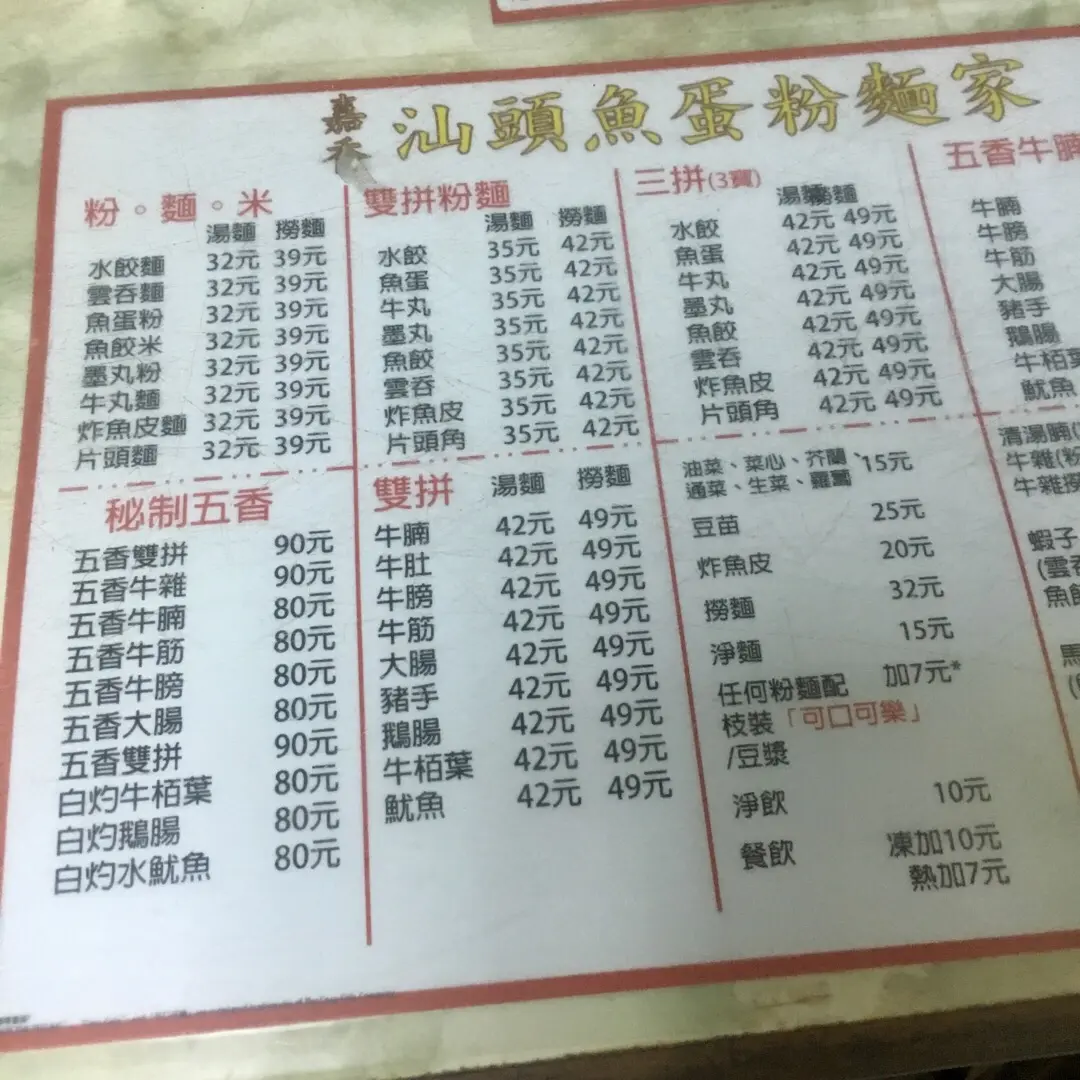 嘉禾 汕頭魚蛋粉麵家
粉。麵。米
湯麵 撈麵
水餃麵 32元 39元
雲吞麵 32元 39元
魚蛋粉 32元 39元
魚餃米 32元 39元
墨丸粉 32元 39元
牛丸麵 32元 39元
炸魚皮麵 32元 39元
片頭麵 32元 39元
秘制五香
五香雙拼 90元
五香牛雜 90元
五香牛腩 80元
五香牛筋 80元
五香牛膀 80元
五香大腸 80元
五香雙拼 90元
白灼牛栢葉 80元
白灼鵝腸 80元
白灼水魷魚 80元
雙拼粉麵
湯麵 撈麵
水餃 35元 42元
魚蛋 35元 42元
牛丸 35元 42元
墨丸 35元 42元
魚餃 35元 42元
雲吞 35元 42元
炸魚皮 35元 42元
片頭角 35元 42元
雙拼 湯麵 撈麵
牛腩 42元 49元
牛肚 42元 49元
牛膀 42元 49元
牛筋 42元 49元
大腸 42元 49元
豬手 42元 49元
鵝腸 42元 49元
牛栢葉 42元 49元
魷魚 42元 49元
三拼(3寶)
湯麵 撈麵
水餃 42元 49元
魚蛋 42元 49元
牛丸 42元 49元
墨丸 42元 49元
魚餃 42元 49元
雲吞 42元 49元
炸魚皮 42元 49元
片頭角 42元 49元
油菜、菜心、芥蘭、15元
通菜、生菜、蘿蔔
豆苗 25元
炸魚皮 20元
撈麵 32元
淨麵 15元
任何粉麵配 加7元*
枝裝「可口可樂」
/豆漿
淨飲 10元
餐飲 凍加10元
熱加7元
五香牛腩
牛腩
牛膀
牛筋
大腸
豬手
鵝腸
牛栢葉
魷魚
清湯腩(
牛雜(粉
牛雜撈
蝦子
(雲吞
魚